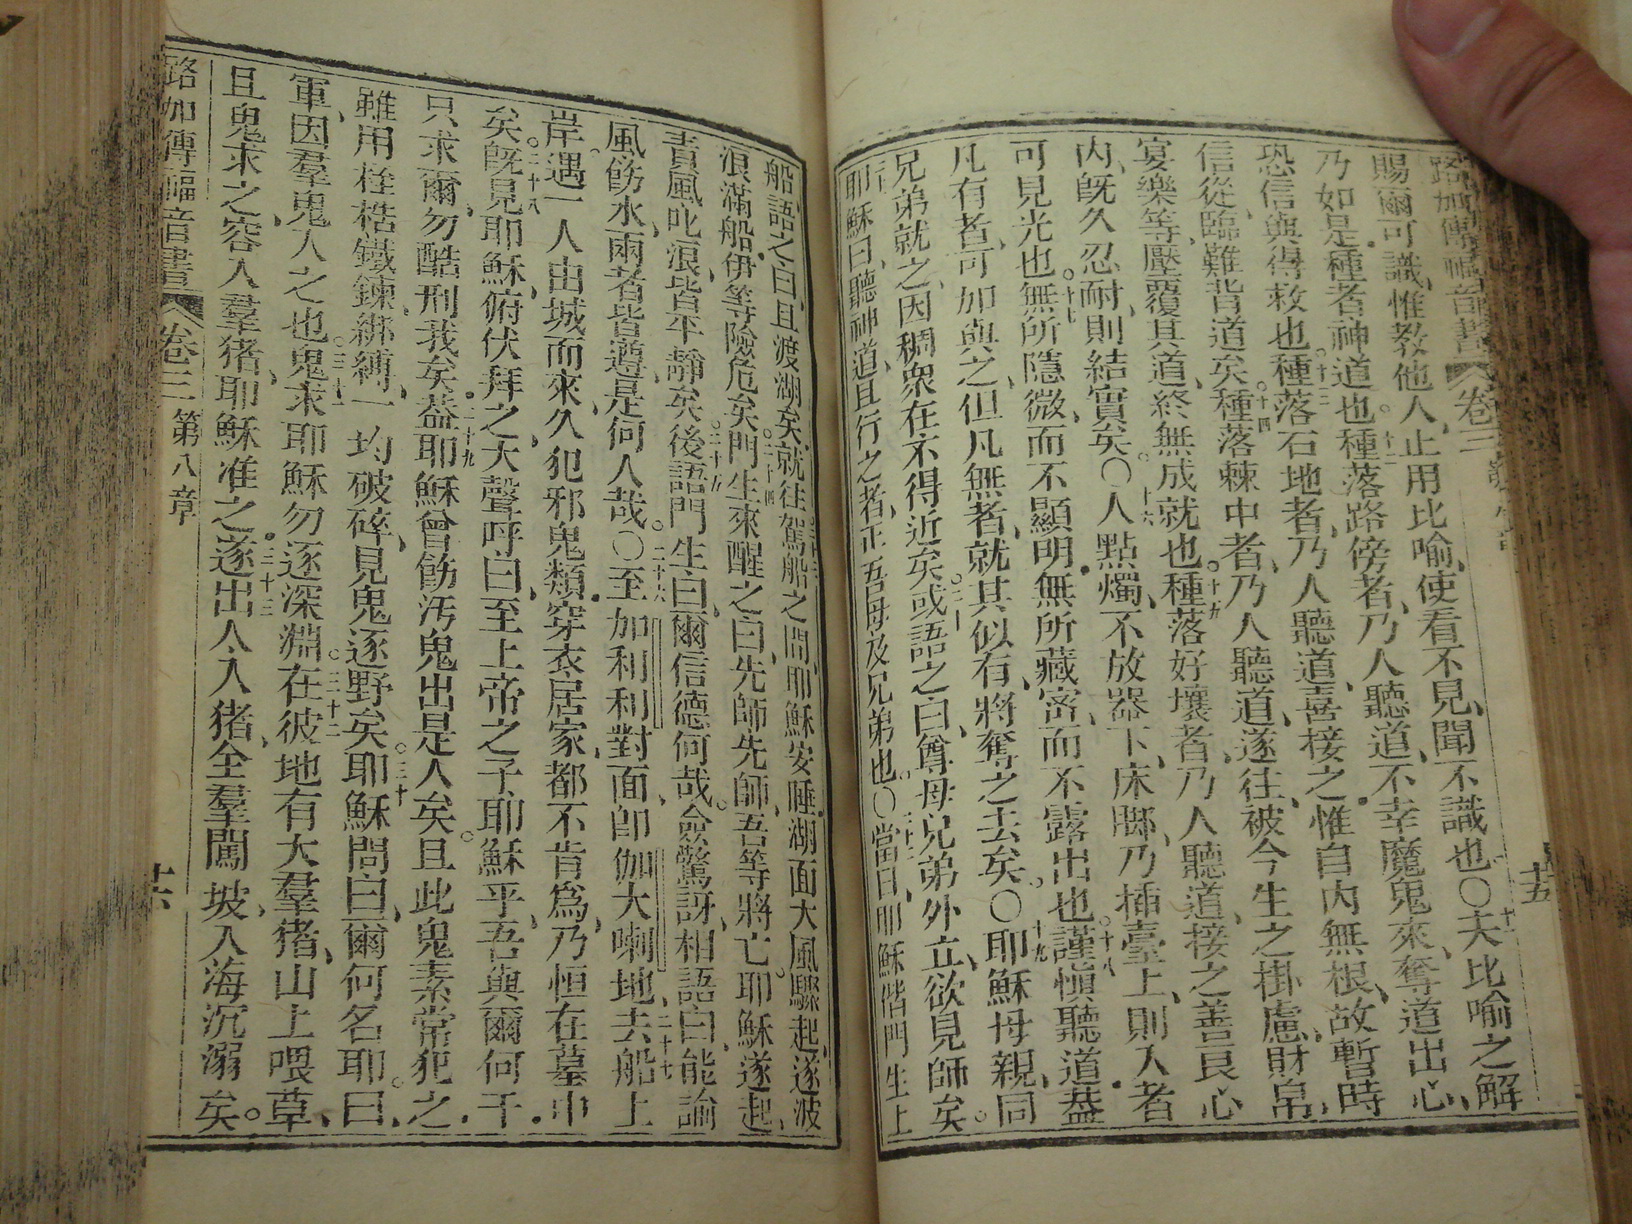 路加傳福音書 卷三
十五
賜爾可識、惟教他人、止用比喻、使看不見、聞不識也○十一夫比喻之解
乃如是種者神道也。十二種落路傍者、乃人聽道、不幸魔鬼來、奪道出心、
恐信與得救也。十三種落石地者、乃人聽道、喜接之、惟自內無根、故暫時
信從、臨難背道矣。十四種落棘中者、乃人聽道、遂往、被今生之掛慮、財帛、
宴樂等、壓覆其道、終無成就也。十五種落好壤者、乃人聽道、接之善良心
內、既久忍耐、則結實矣。○十六人點燭、不放器下、床腳、乃插臺上、則入者
可見光也。十七無所隱微、而不顯明、無所藏密、而不露出也。十八謹慎聽道、蓋
凡有者、可加與之、但凡無者、就其似有、將奪之去矣。○十九耶穌母親、同
兄弟就之、因稠衆在、不得近矣。二十或語之曰、尊母兄弟外立、欲見師矣。
耶穌曰、聽神道、且行之者、正吾母及兄弟也。○二十二當日、耶穌偕門生上
船、語之曰、且渡湖矣、就往駕船之間、耶穌安睡、湖面大風驟起、遂波
浪滿船、伊等險危矣。二十四門生來醒之曰、先師先師、吾等將亡、耶穌遂起、
責風叱浪、皆平靜矣。二十五後語門生曰、爾信德何哉、僉驚訝、相語曰、能諭
風飭水、兩者皆遵、是何人哉。○二十六至加利利對面、即伽大喇地、二十七去船上
岸、遇一人由城而來、久犯邪鬼類、穿衣居家、都不肯爲、乃恒在墓中
矣。二十八既見耶穌、俯伏拜之、大聲呼曰、至上帝之子耶穌乎、吾與爾何干、
只求爾、勿酷刑我矣。二十九蓋耶穌曾飭汚鬼出是人矣。且此鬼素常犯之、
雖用桎梏鐵鍊綁縛、一均破碎、見鬼逐野矣。三十耶穌問曰、爾何名耶。曰、
軍、因羣鬼入之也。三十一鬼求耶穌、勿逐深淵。三十二在彼地有大羣猪、山上喂草、
且鬼求之、容入羣猪、耶穌准之、三十三遂出人入猪、全羣闖坡、入海沉溺矣。
路加傳福音書 卷三 第八章
十六